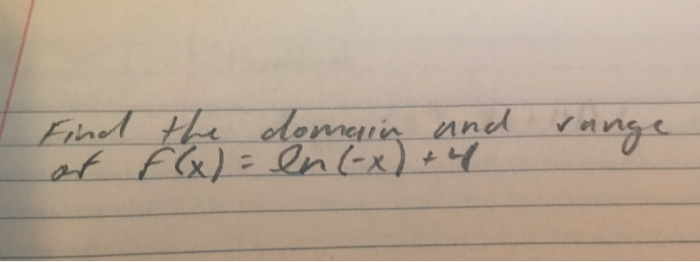 Find the domain and range
of f(x) = ln(-x) + 4